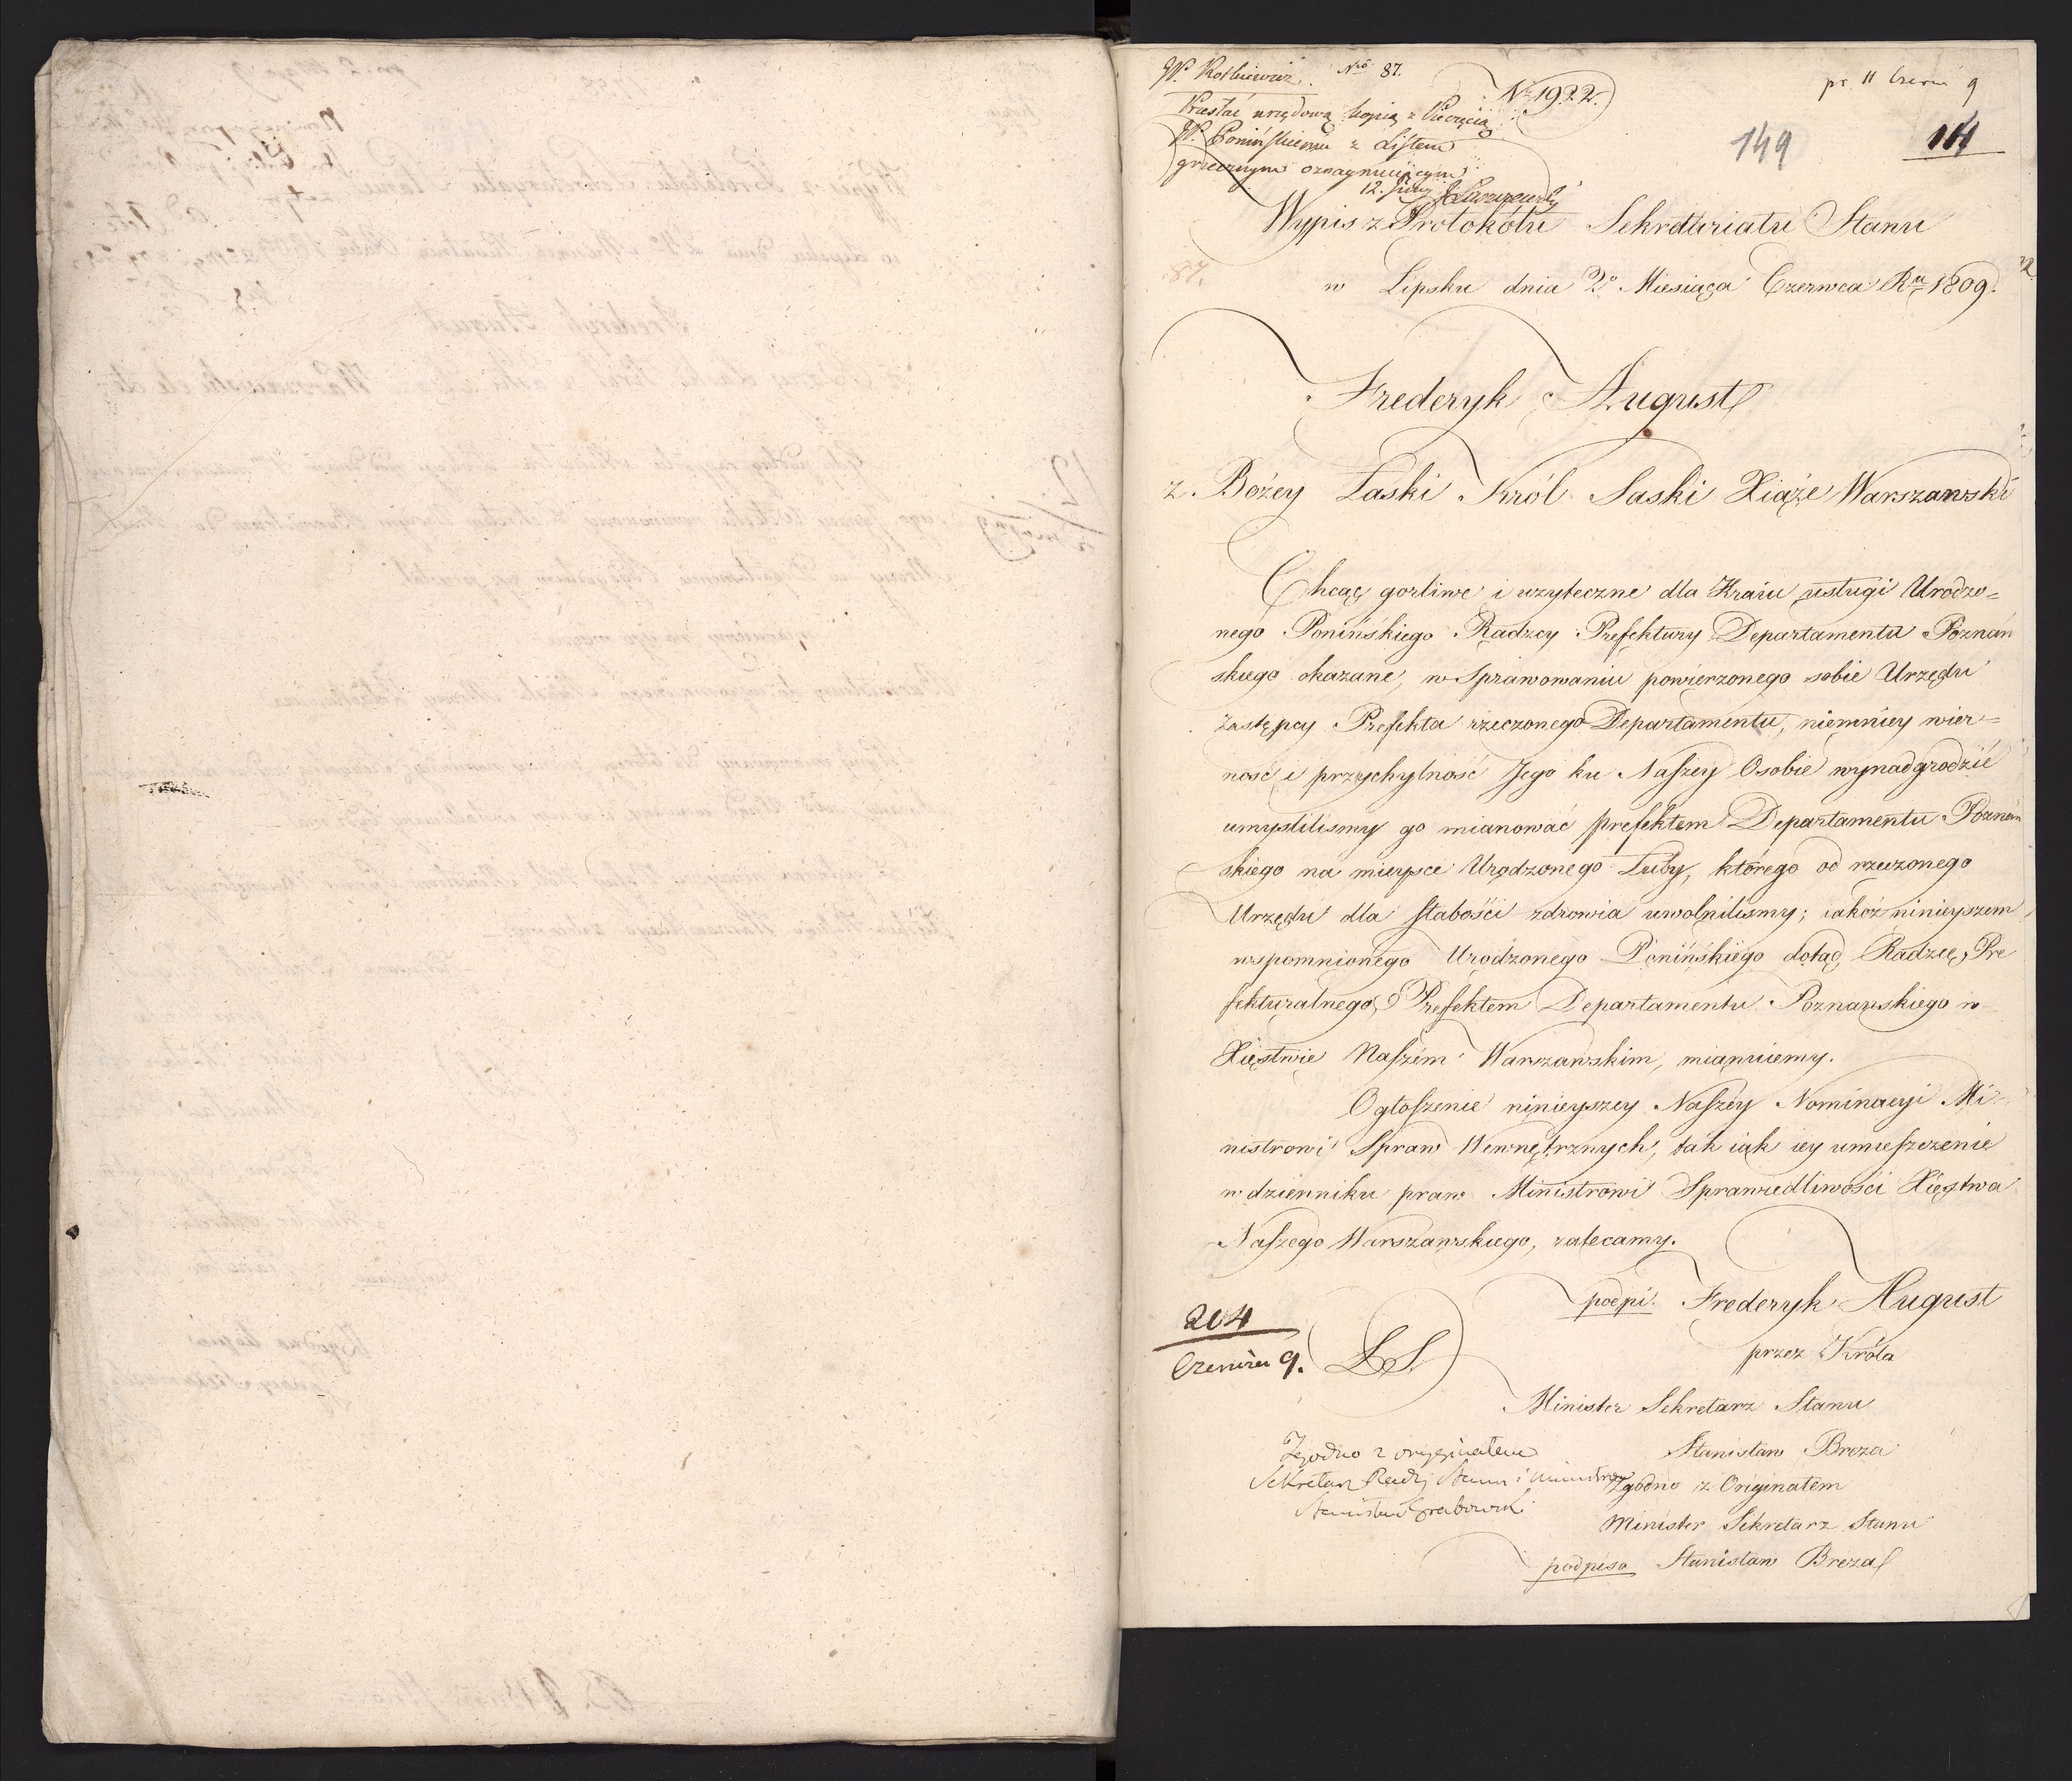 W. Rothiewicz. Nro 87.
No 1922.
pr. 11 Czerw 9
Przesłać urzędową kopią z Pieczęcią
W. Ponińskiemu z Listem
grzecznym oznaymuiącym
12. Juny
149
114
Wypis z Protokółu Sekretariatu Stanu
87.
w Lipsku dnia 2o Miesiąca Czerwca Ru 1809.
Frederyk August
z Bożey Łaski Król Saski Xiąże Warszawski
Chcąc gorliwe i uzyteczne dla Kraiu usługi Urodzo=
nego Ponińskiego Radzcy Prefektury Departamentu Poznań
skiego okazane, w Sprawowaniu powierzonego sobie Urzędu
Zastępcy Prefekta rzeczonego Departamentu, niemniey wier=
ność i przychylność Jego ku Naszey Osobie wynadgrodzić
umyslilismy go mianować prefektem Departamentu Poznań
skiego na mieysce Urodzonego Luby, którego od rzeczonego
Urzędu dla słabości zdrowia uwolnilismy; iakoż ninieyszem
wspomnionego Urodzonego Ponińskiego dotąd Radzcę Pre
fekturalnego, Prefektem Departamentu Poznańskiego w
Xięstwie Naszém Warszawskim, mianuiemy.
Ogłoszenie ninieyszey Naszey Nominacyi Mi
nistrowi Spraw Wewnętrznych, tak iak iey umieszczenie
w dzienniku praw Ministrowi Sprawiedliwości Xięstwa
Naszego Warszawskiego, zalecamy.
podpi. Frederyk August
204
Czerwca 9.
LS
przez Króla
Minister Sekretarz Stanu
Stanisław Breza
Zgodno z oryginałem
Sekretarz Rady Stanu i Ministrów
Stanisław Grabowski
Zgodno z Originałem
Minister Sekretarz Stanu
podpisa Stanisław Breza